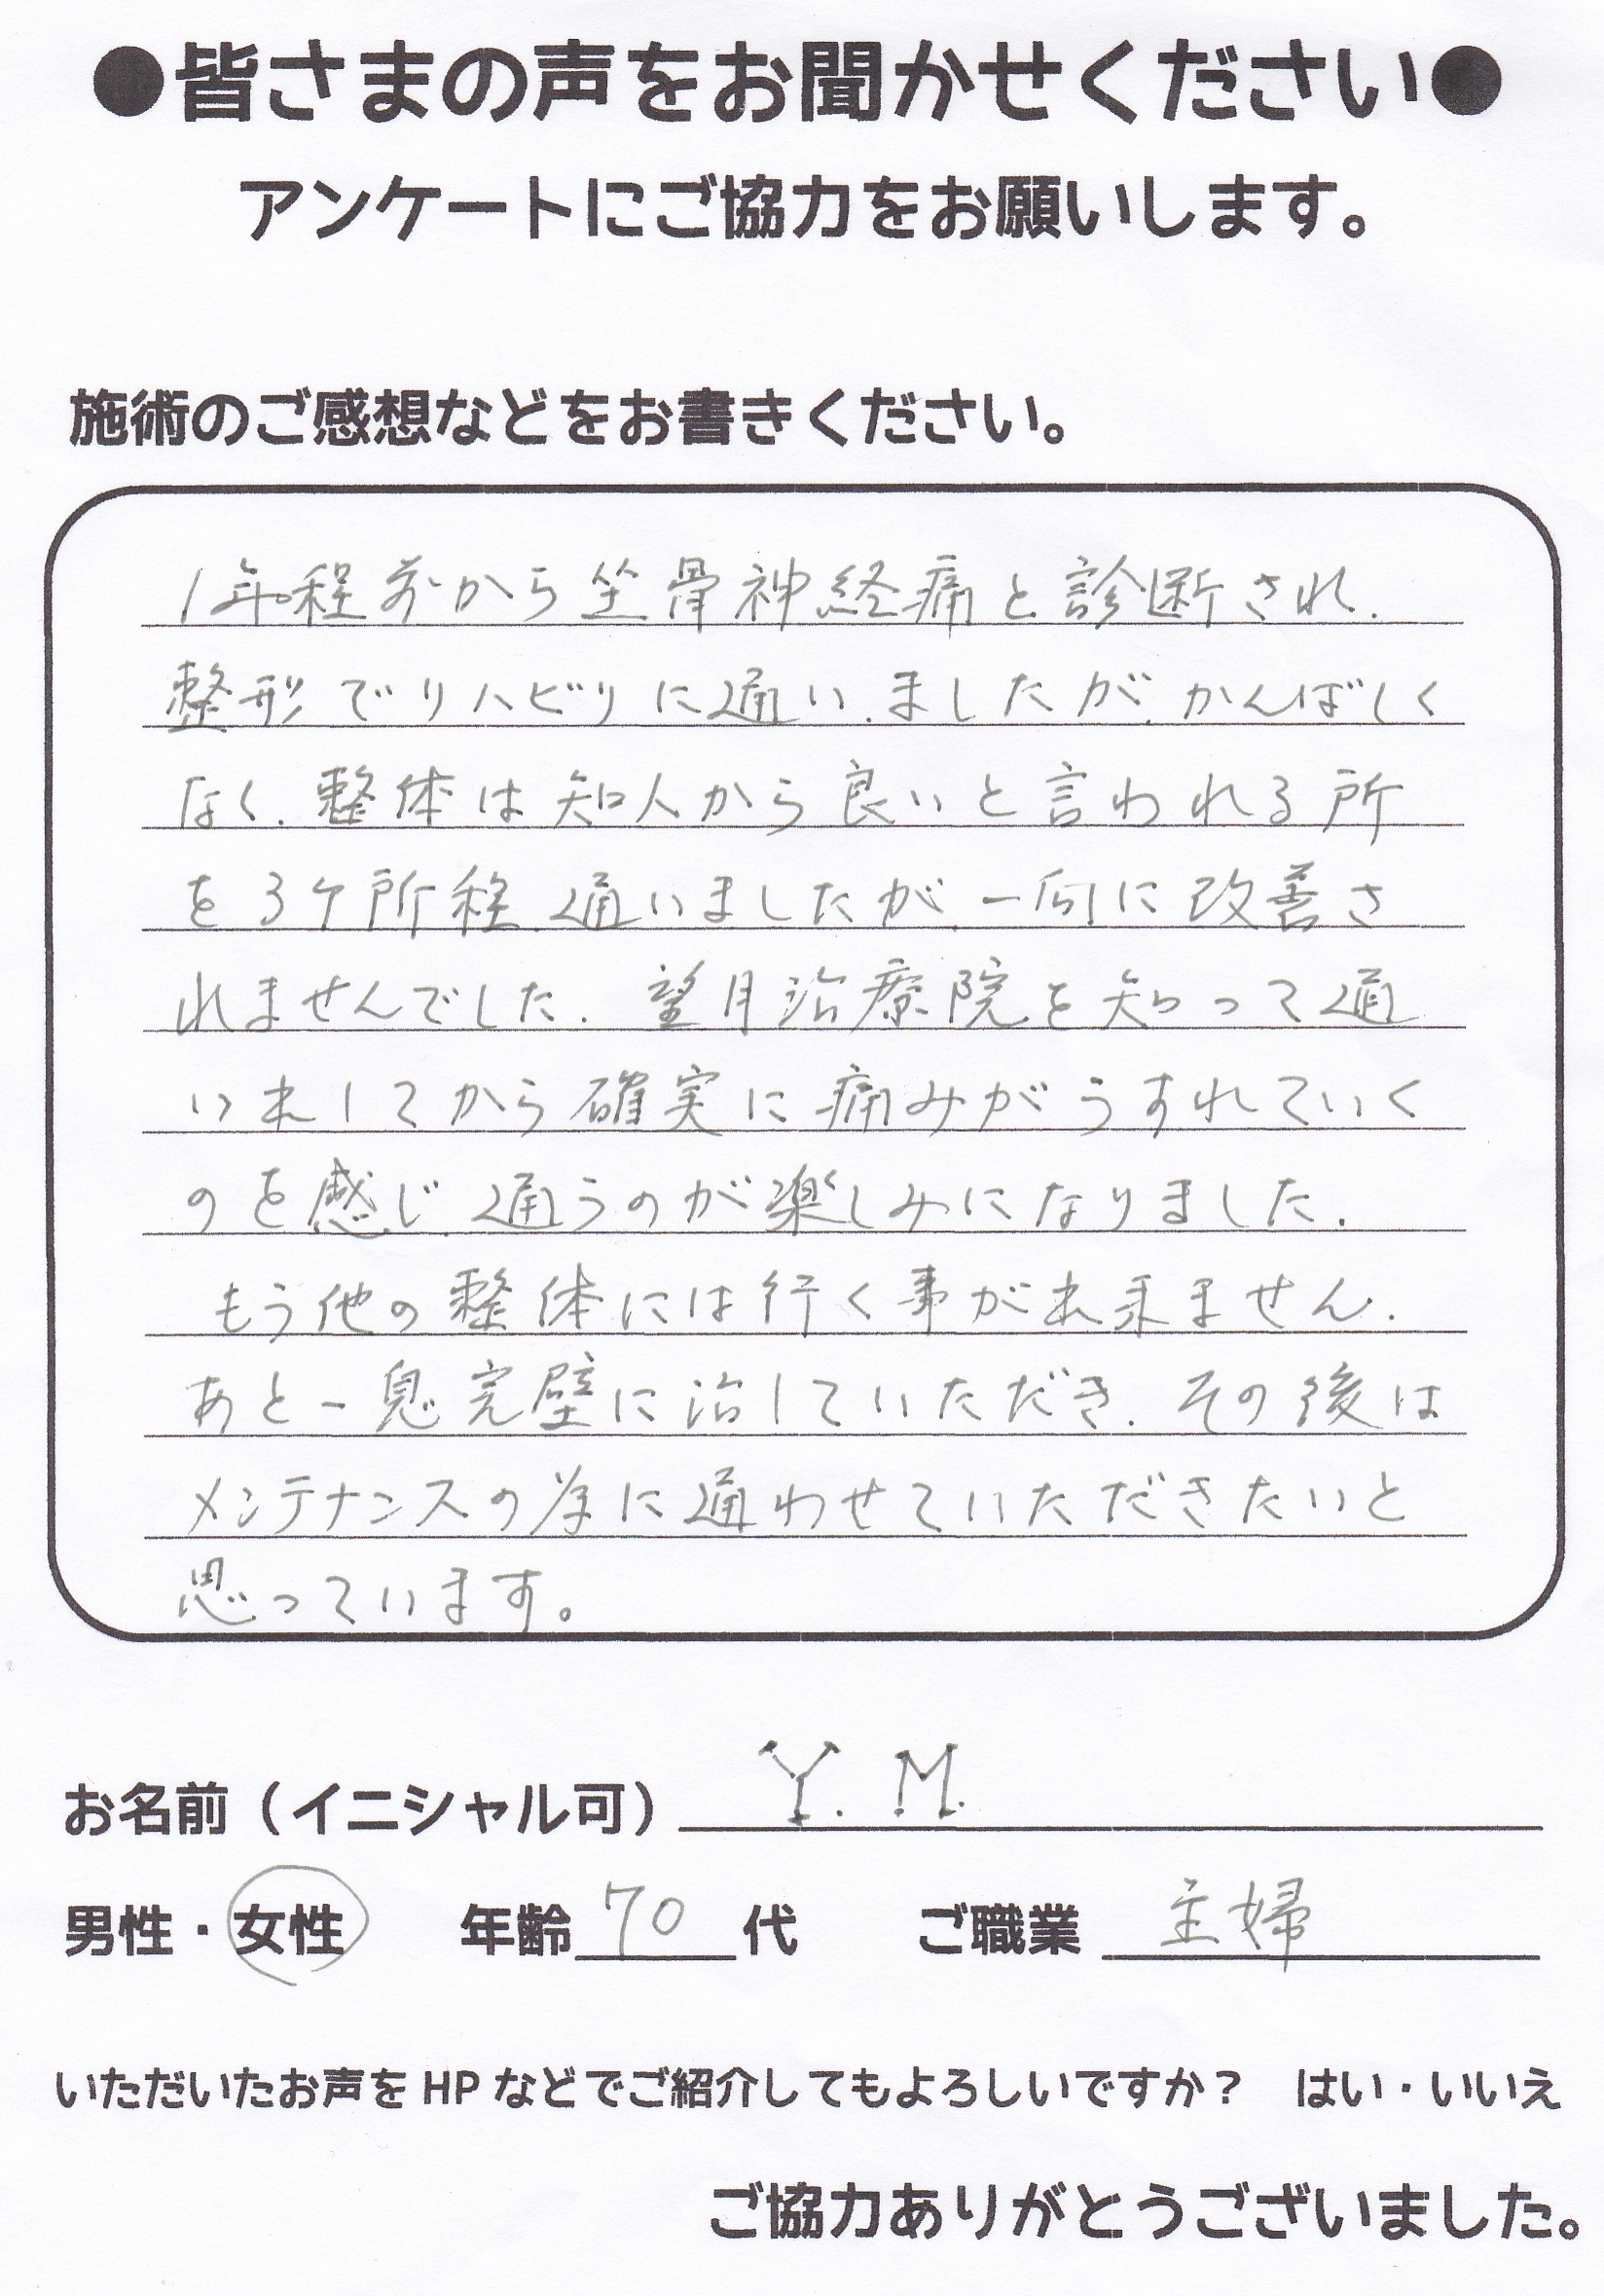 ●皆さまの声をお聞かせください●
アンケートにご協力をお願いします。
施術のご感想などをお書きください。
1年程前から坐骨神経痛と診断され.
整形でリハビリに通い.ましたが.かんばしく
なく.整体は知人から良いと言われる所
を3ケ所程.通いましたが.一向に改善さ
れませんでした.望月治療院を知って通
い出してから確実に痛みがうすれていく
のを感じ.通うのが楽しみになりました.
もう他の整体には行く事が出来ません.
あと一息完璧に治していただき.その後は
メンテナンスの為に通わせていただきたいと
思っています。
お名前（イニシャル可） Y. M.
男性・女性 年齢 70 代 ご職業 主婦
いただいたお声をHPなどでご紹介してもよろしいですか？ はい・いいえ
ご協力ありがとうございました。